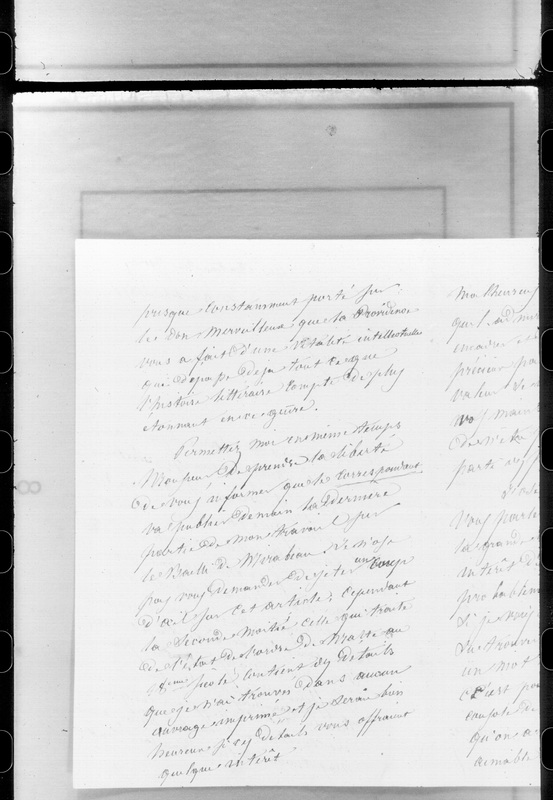 presque constamment porté sur
le don merveilleux que la Providence
vous a fait d'une vitalité intellectuelle
qui dépasse déja tout ce que
l'histoire littéraire compte de plus
étonnant en ce genre.
Permettez moi en même temps
Monsieur de prendre la liberté
de vous informer que le correspondant
va publier demain la dernière
partie de mon travail sur
le Bailli de Mirabeau. Je n'ose
pas vous demander de jeter un coup
d'œil sur cet article, cependant
la seconde moitié celle qui traite
de l'état de l'ordre de Malte au
18eme siècle contient des détails
que je n'ai trouvés dans aucun
ouvrage imprimé et je serais bien
heureux si ces détails vous offraient
quelque intérêt
Malheureus
que
encore
précieu
valeur
vos mains
parti
Vous parle
la grande
intérêt
probablem
si je
un mot
c'est
compte de
qu'on
aimable